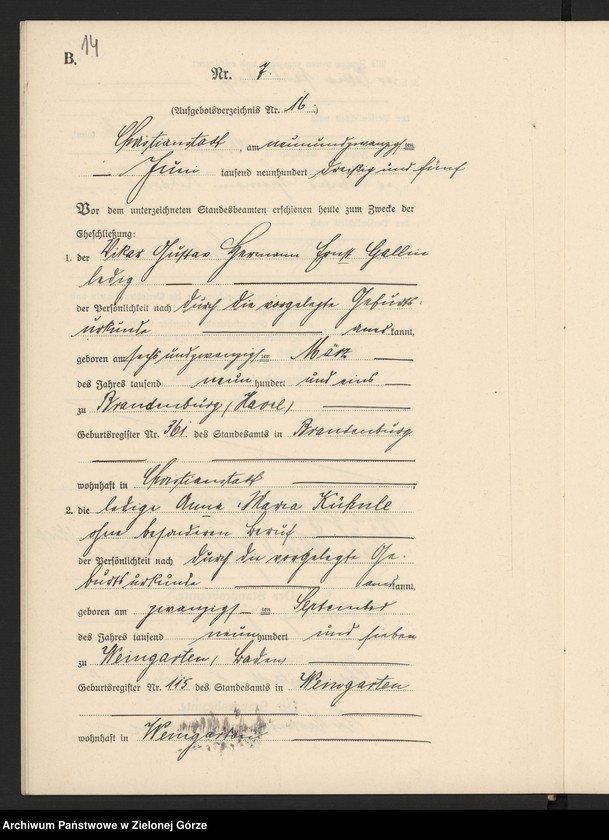 B. 14
Nr. 7.
(Aufgebotsverzeichnis Nr. 16.)
Christianstadt, am neunundzwanzigsten
— Juni tausend neunhundert dreißig und fünf
Vor dem unterzeichneten Standesbeamten erschienen heute zum Zwecke der
Eheschließung:
1. der Vikar Gustav Hermann Ernst Gallin
ledig
der Persönlichkeit nach durch die vorgelegte Geburts-
urkunde anerkannt,
geboren am sechsundzwanzigsten März
des Jahres tausend neunhundert und eins
zu Brandenburg (Havel)
Geburtsregister Nr. 361 des Standesamts in Brandenburg
wohnhaft in Christianstadt
2. die ledige Anna Maria
ohne besonderen Beruf
der Persönlichkeit nach durch die vorgelegte Ge-
burtsurkunde anerkannt,
geboren am zwanzigsten September
des Jahres tausend neunhundert und sieben
zu Weingarten, Baden
Geburtsregister Nr. 115 des Standesamts in Weingarten
wohnhaft in Weingarten
Archiwum Państwowe w Zielonej Górze